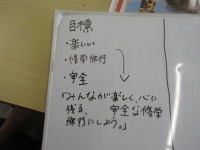 目標
・楽しい
・修学旅行
・安全
「みんなが楽しく、心に
残る、安全な修学
旅行にしよう。」